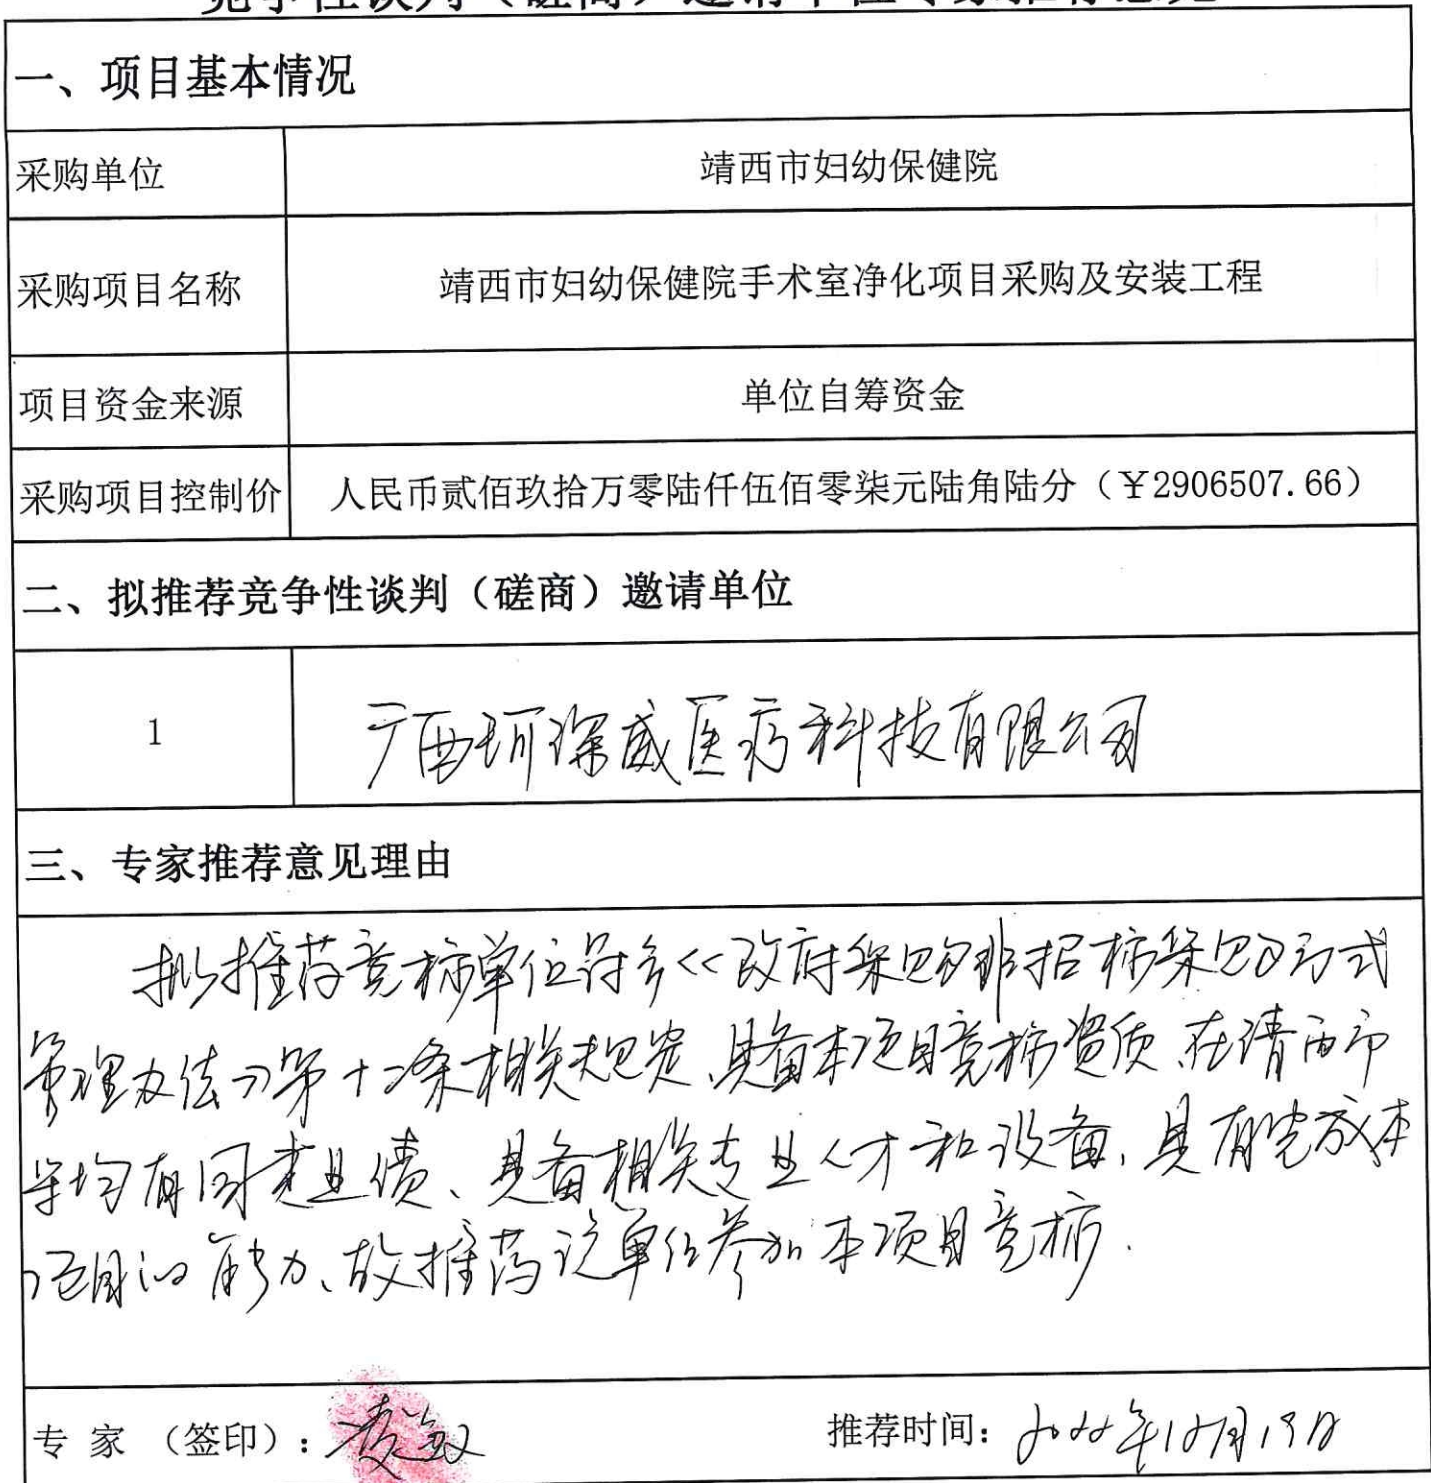 竞争性谈判（磋商）邀请单位专家推荐意见
一、项目基本情况
采购单位 靖西市妇幼保健院
采购项目名称 靖西市妇幼保健院手术室净化项目采购及安装工程
项目资金来源 单位自筹资金
采购项目控制价 人民币贰佰玖拾万零陆仟伍佰零柒元陆角陆分（￥2906507.66）
二、拟推荐竞争性谈判（磋商）邀请单位
1 广西珂深威医疗科技有限公司
三、专家推荐意见理由
拟推荐竞标单位符合<<政府采购非招标采购方式
管理办法>>第十二条相关规定、具备本项目竞标资质、在靖西市
等均有同类业绩、具备相关专业人才和设备、具有完成本
项目的能力、故推荐该单位参加本项目竞标.
专 家 （签印）： 推荐时间：2022年12月19日